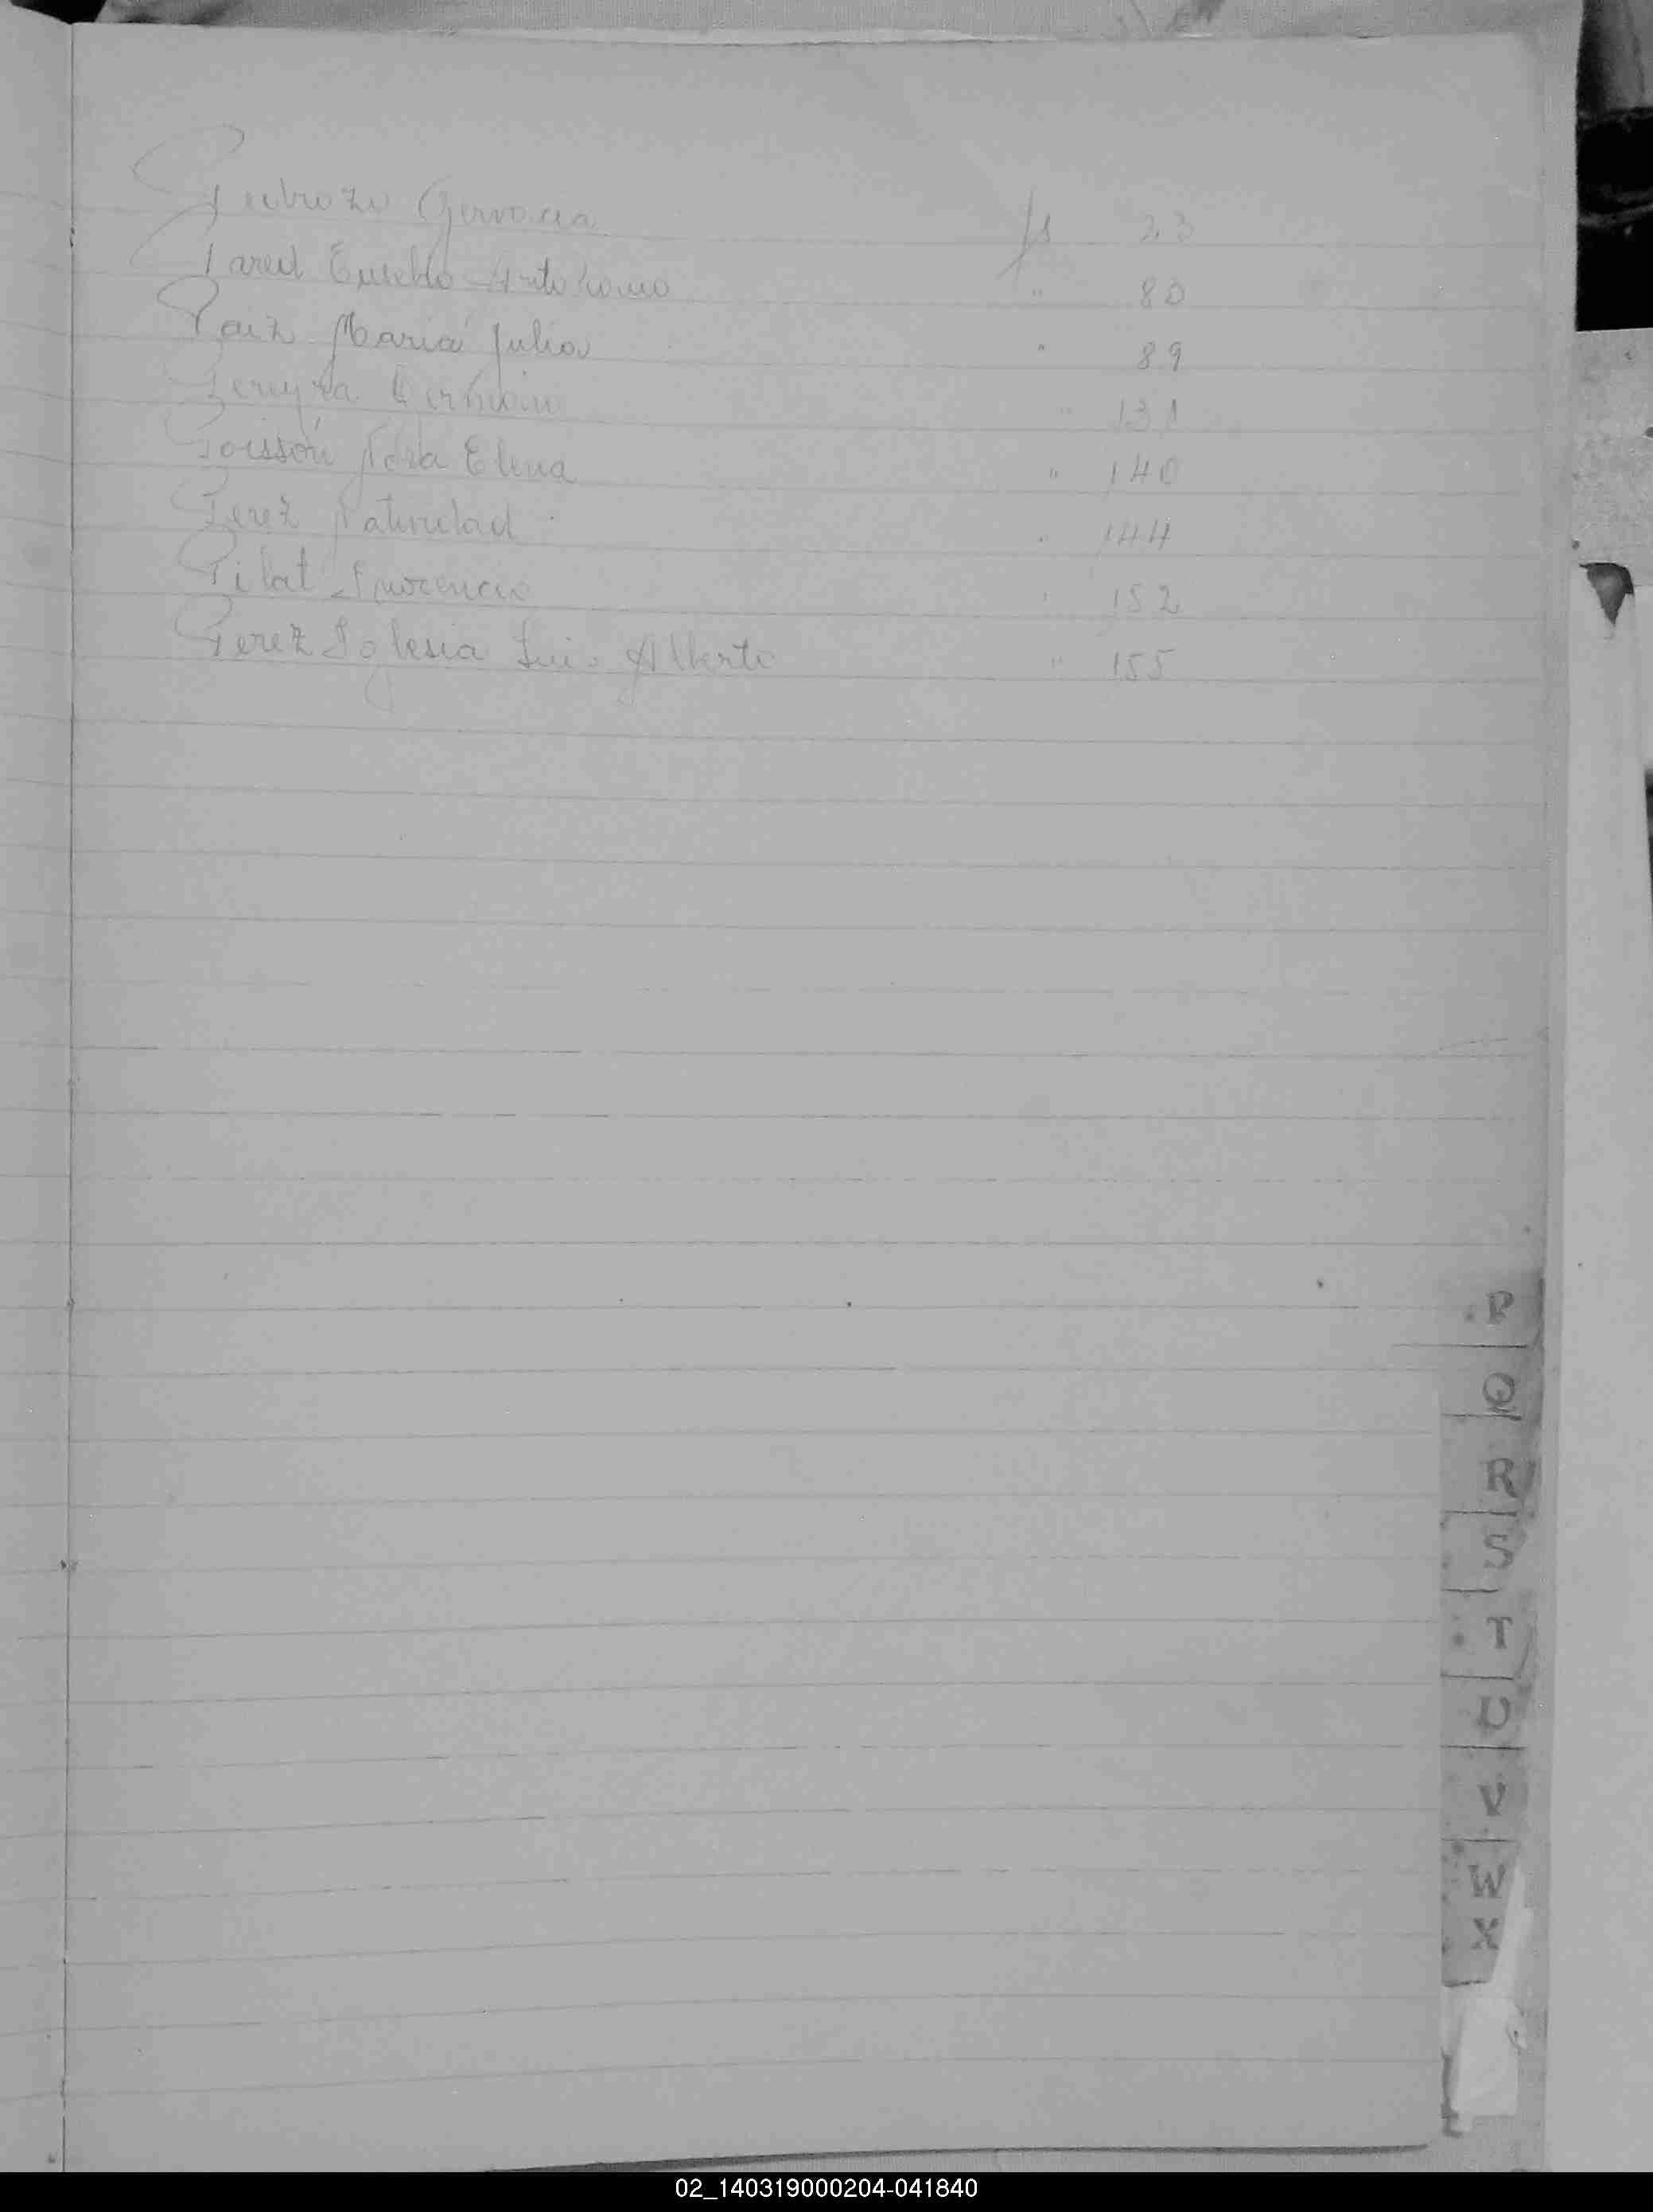 Pedrozo Gervacia fs 23
Eusebio Antonio " 80
Paiz Maria Julia " 89
Pereyra German " 131
Poisson Nora Elena " 140
Perez Natividad " 144
Pilat " 152
Perez Iglesia Luis Alberto " 155
P
Q
R
S
T
U
V
W
X
02_140319000204-041840